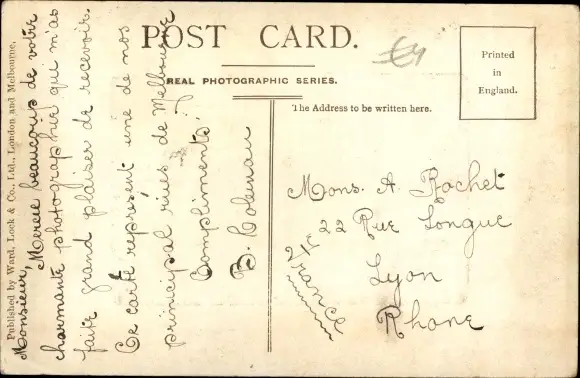 POST CARD.
REAL PHOTOGRAPHIC SERIES.
Printed
in
England.
The Address to be written here.
Published by Ward, Lock & Co., Ltd., London and Melbourne.
Monsieur,
Mercie beaucoups de votre
charmante photographie qui m'as
faite grand plaiser de recevoir.
Ce carte représent une de nos
principal rües de Melbourne
Compliments,
B. Coleman
Mons. A. Rochet
22 Rue Longue
Lyon
Rhone
France